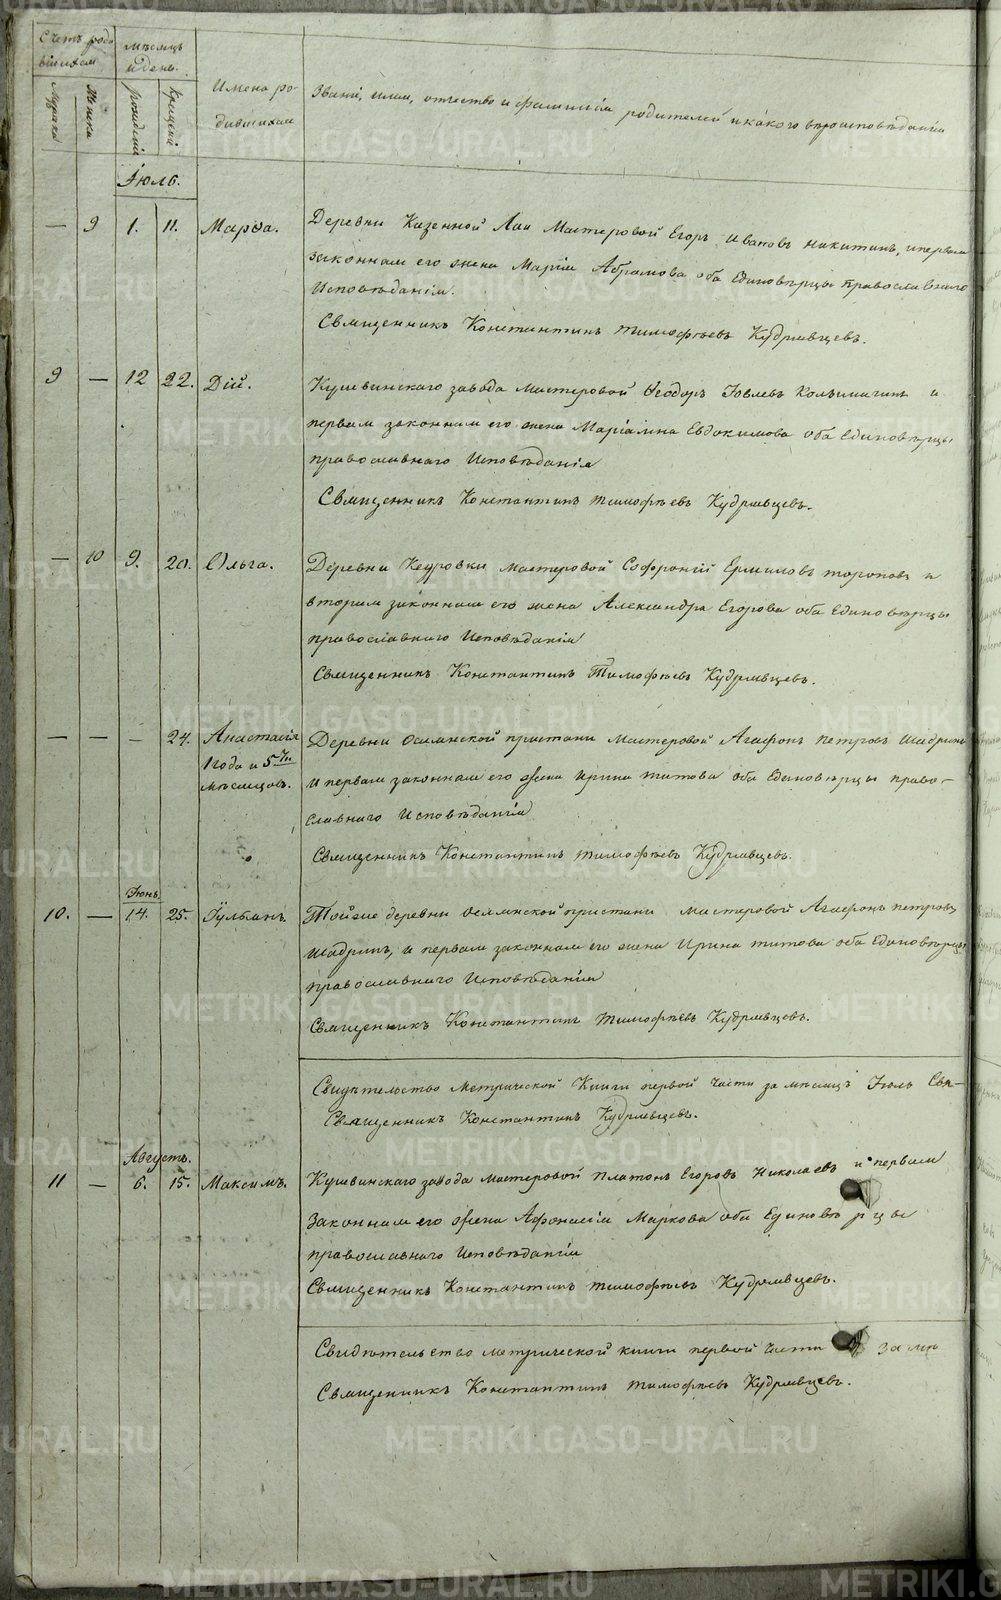 Счетъ родившихся
Мужска
Женска
Мѣсяцъ и день.
рожденiй
крещенiй
Имена родившихся
Званiе, имя, отчество и фамилiя родителей и какого вѣроисповѣданiя
Iюль.
— 9 1. 11. Марѳа. Деревни Казенной Лаи Мастеровой Егоръ Ивановъ Никитинъ, и первая
законная его жена Марiя Абрамова оба Единовѣрцы православнаго
Исповѣданiя.
Священникъ Константинъ Тимофѣевъ Кудрявцевъ.
9 — 12 22. Дiй. Кушвинскаго завода Мастеровой Ѳеодоръ Iовлевъ и
первая законная его жена Марiамна Евдокимова оба Единовѣрцы
православнаго Исповѣданiя
Священникъ Константинъ Тимофѣевъ Кудрявцевъ.
— 10 9. 20. Ольга. Деревни Кедровки Мастеровой Софронiй Ермиловъ Тороповъ и
вторая законная его жена Александра Егорова оба Единовѣрцы
православнаго Исповѣданiя
Священникъ Константинъ Тимофѣевъ Кудрявцевъ.
— — — 24. Анастасiя Деревни Ослянской пристани Мастеровой Агафонъ Петровъ Шадринъ
1 года и 5ти и первая законная его жена Ирина Титова оба Единовѣрцы право-
мѣсяцовъ. славнаго Исповѣданiя
Священникъ Константинъ Тимофѣевъ Кудрявцевъ.
Iюнь
10. — 14. 25. Iулiанъ Тойже деревни Ослянской пристани Мастеровой Агафонъ Петровъ
Шадринъ, и первая законная его жена Ирина Титова оба Единовѣрцы
православнаго Исповѣданiя
Священникъ Константинъ Тимофѣевъ Кудрявцевъ.
Свидѣтельство Метрической Книги первой части за мѣсяцъ Iюль
Священникъ Константинъ Кудрявцевъ.
Августъ.
11 — 6. 15. Максимъ. Кушвинскаго завода Мастеровой Платонъ Егоровъ Николаевъ и первая
законная его жена Афанасiя Маркова оба Единовѣрцы
православнаго Исповѣданiя
Священникъ Константинъ Тимофѣевъ Кудрявцевъ.
Свидѣтельство метрической книги первой части за мѣ
Священникъ Константинъ Тимофѣевъ Кудрявцевъ.
METRIKI.GASO-URAL.RU